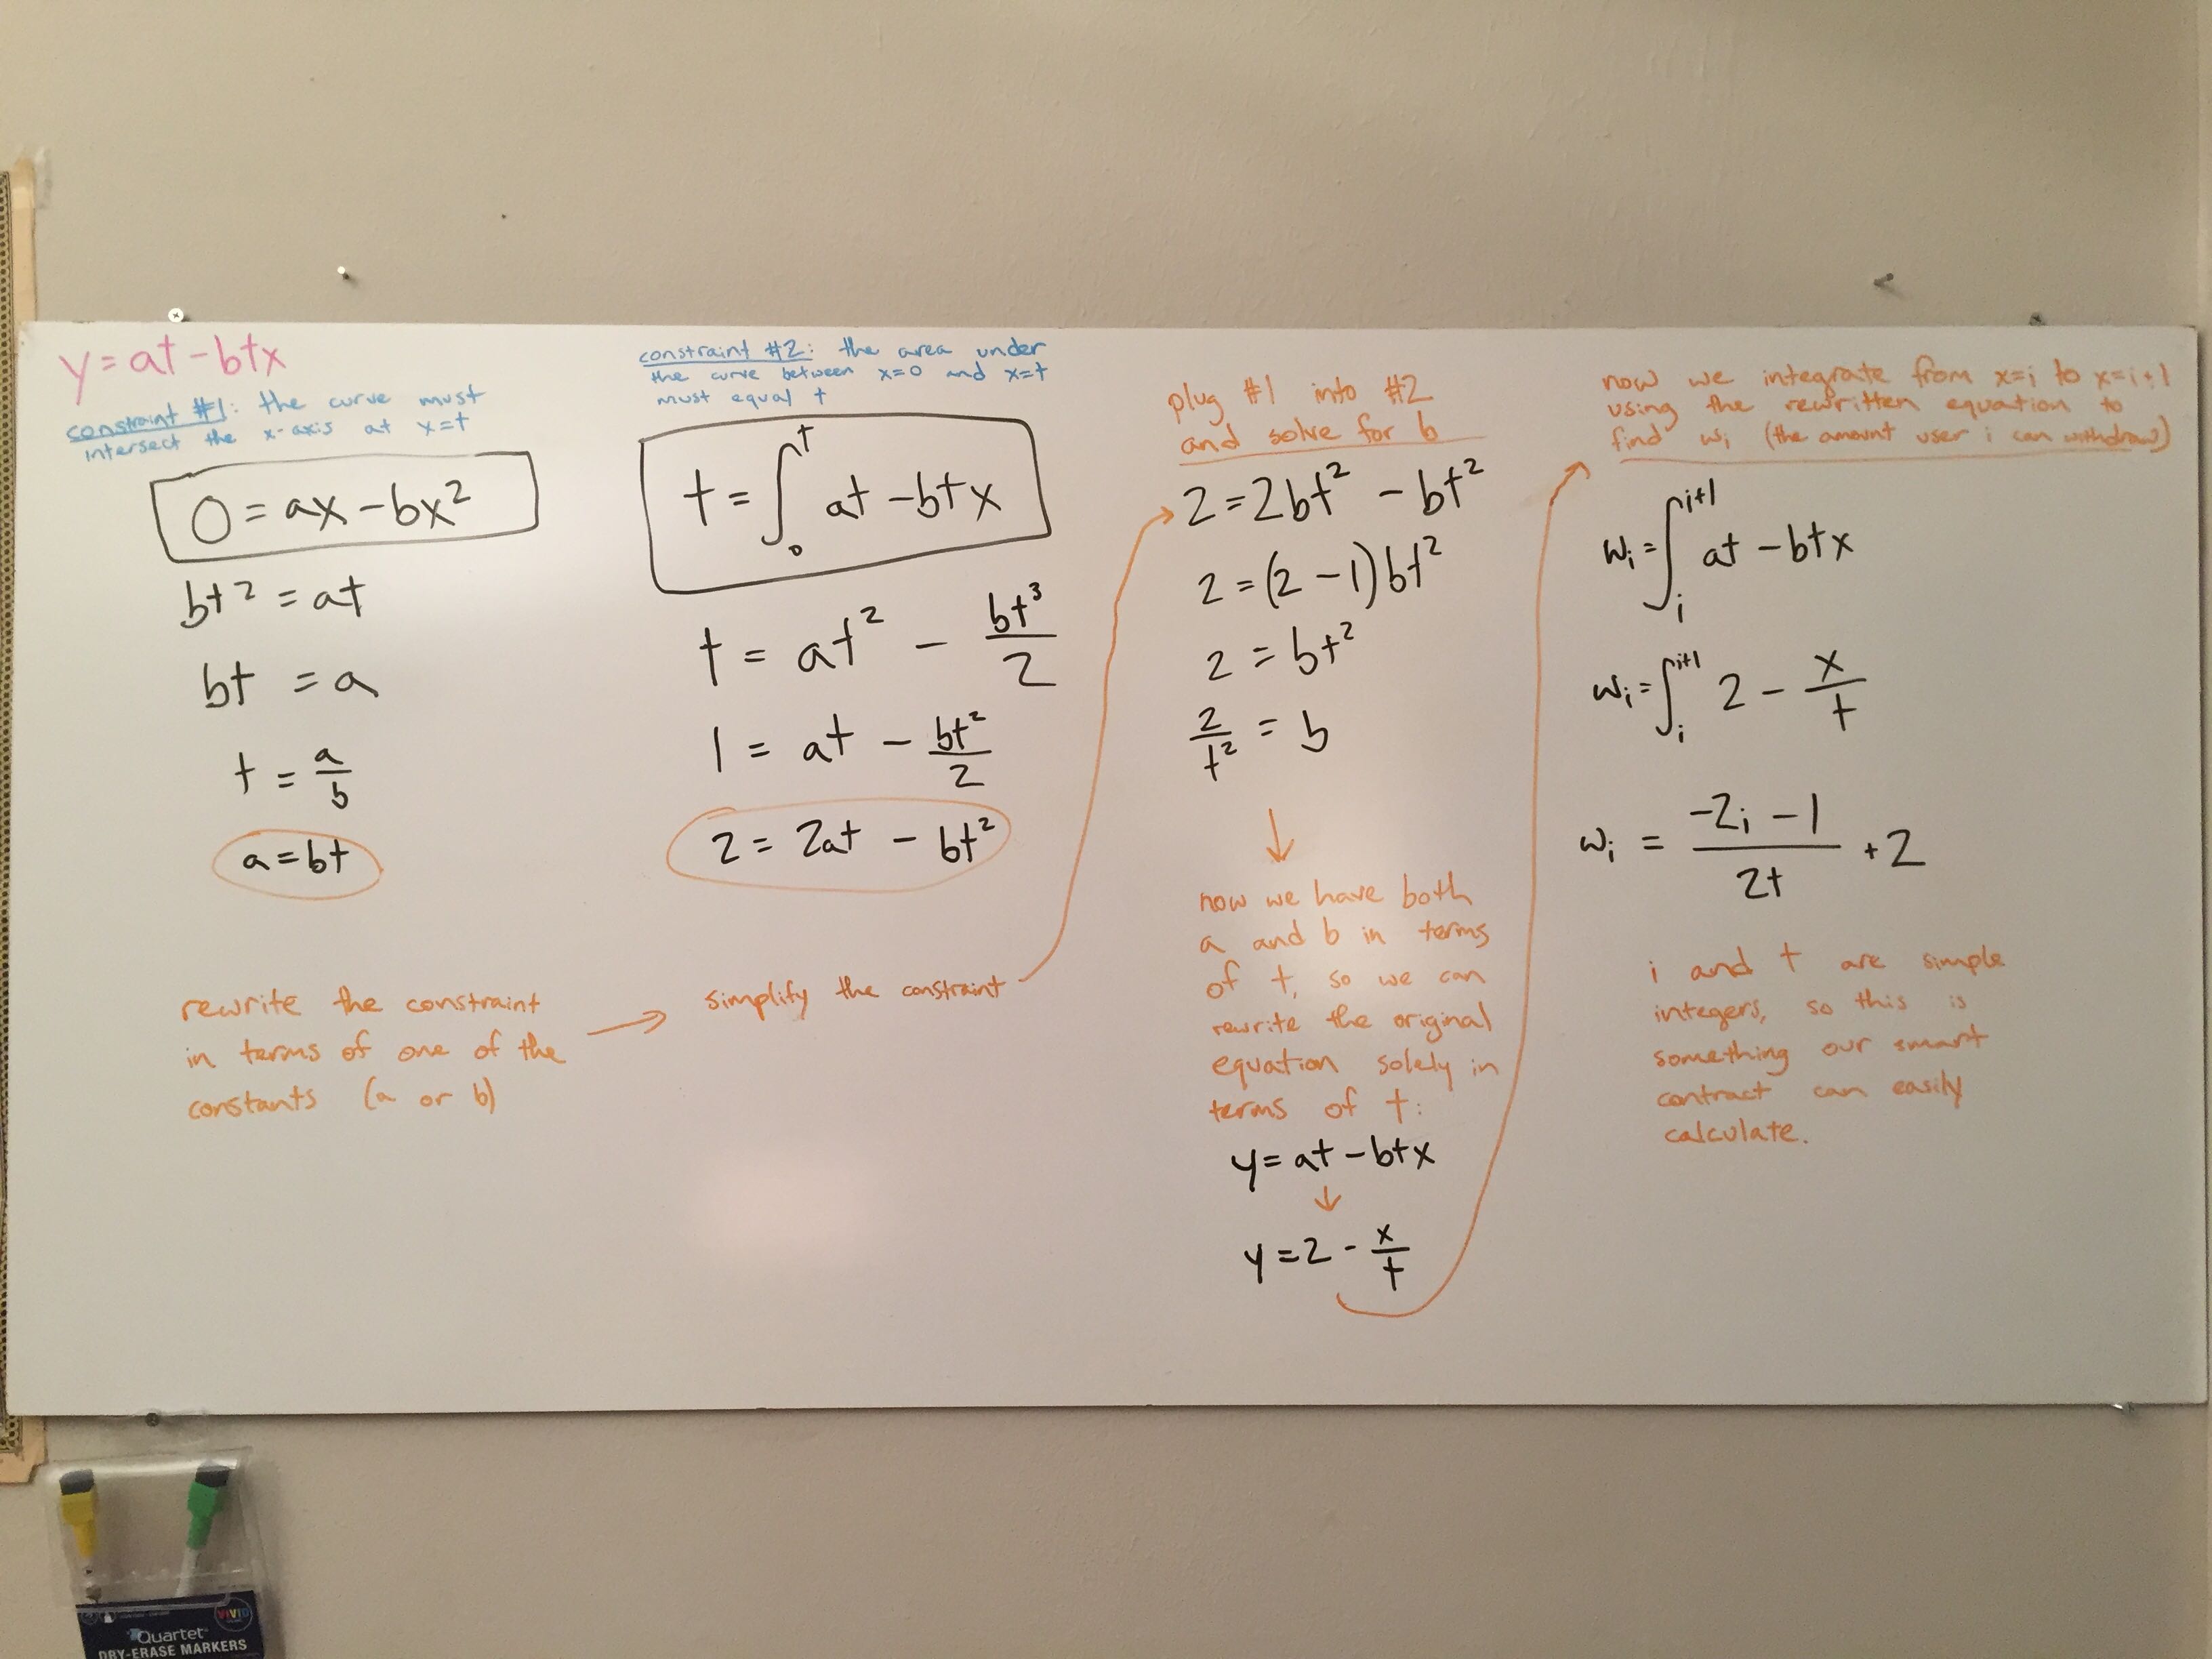 y = at - btx
constraint #1: the curve must
intersect the x-axis at x=t
0 = ax - bx²
bt² = at
bt = a
t = a/b
a = bt
rewrite the constraint
in terms of one of the
constants (a or b)
constraint #2: the area under
the curve between x=0 and x=t
must equal t
t = ∫₀ᵗ at - btx
t = at² - bt³/2
1 = at - bt²/2
2 = 2at - bt²
simplify the constraint
plug #1 into #2
and solve for b
2 = 2bt² - bt²
2 = (2 - 1)bt²
2 = bt²
2/t² = b
now we have both
a and b in terms
of t, so we can
rewrite the original
equation solely in
terms of t:
y = at - btx
y = 2 - x/t
now we integrate from x=i to x=i+1
using the rewritten equation to
find wᵢ (the amount user i can withdraw)
wᵢ = ∫ᵢⁱ⁺¹ at - btx
wᵢ = ∫ᵢⁱ⁺¹ 2 - x/t
wᵢ = (-2i - 1)/2t + 2
i and t are simple
integers, so this is
something our smart
contract can easily
calculate.
VIVID
Quartet
DRY-ERASE MARKERS